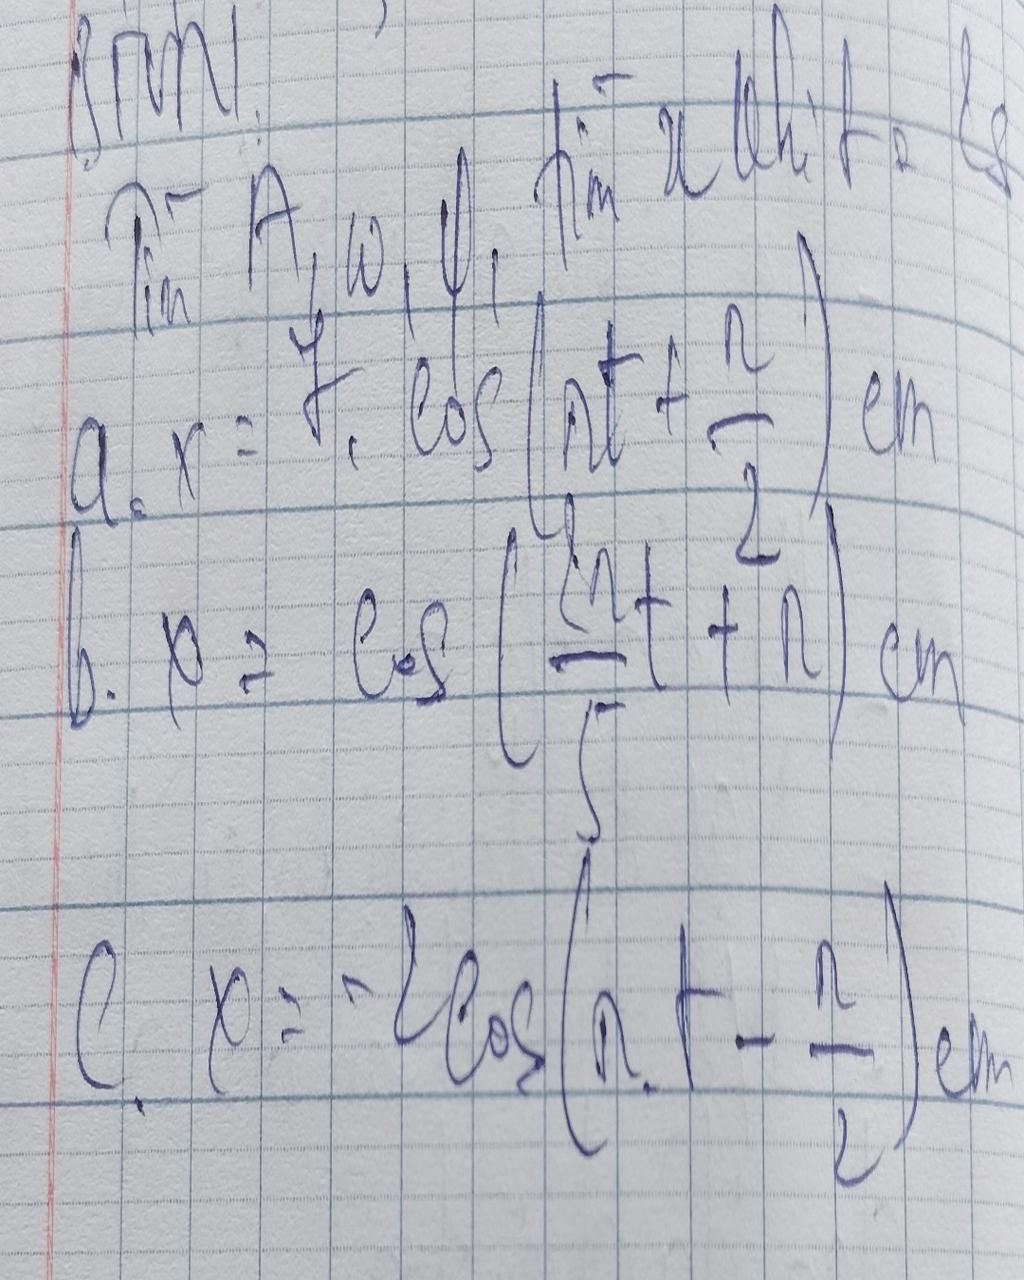 Tìm A, ω, φ, tìm x khi t = 2s
a. x = 7. cos(πt + π/2) cm
b. x = cos(2π/5 t + π) cm
c. x = -2cos(π.t - π/2) cm